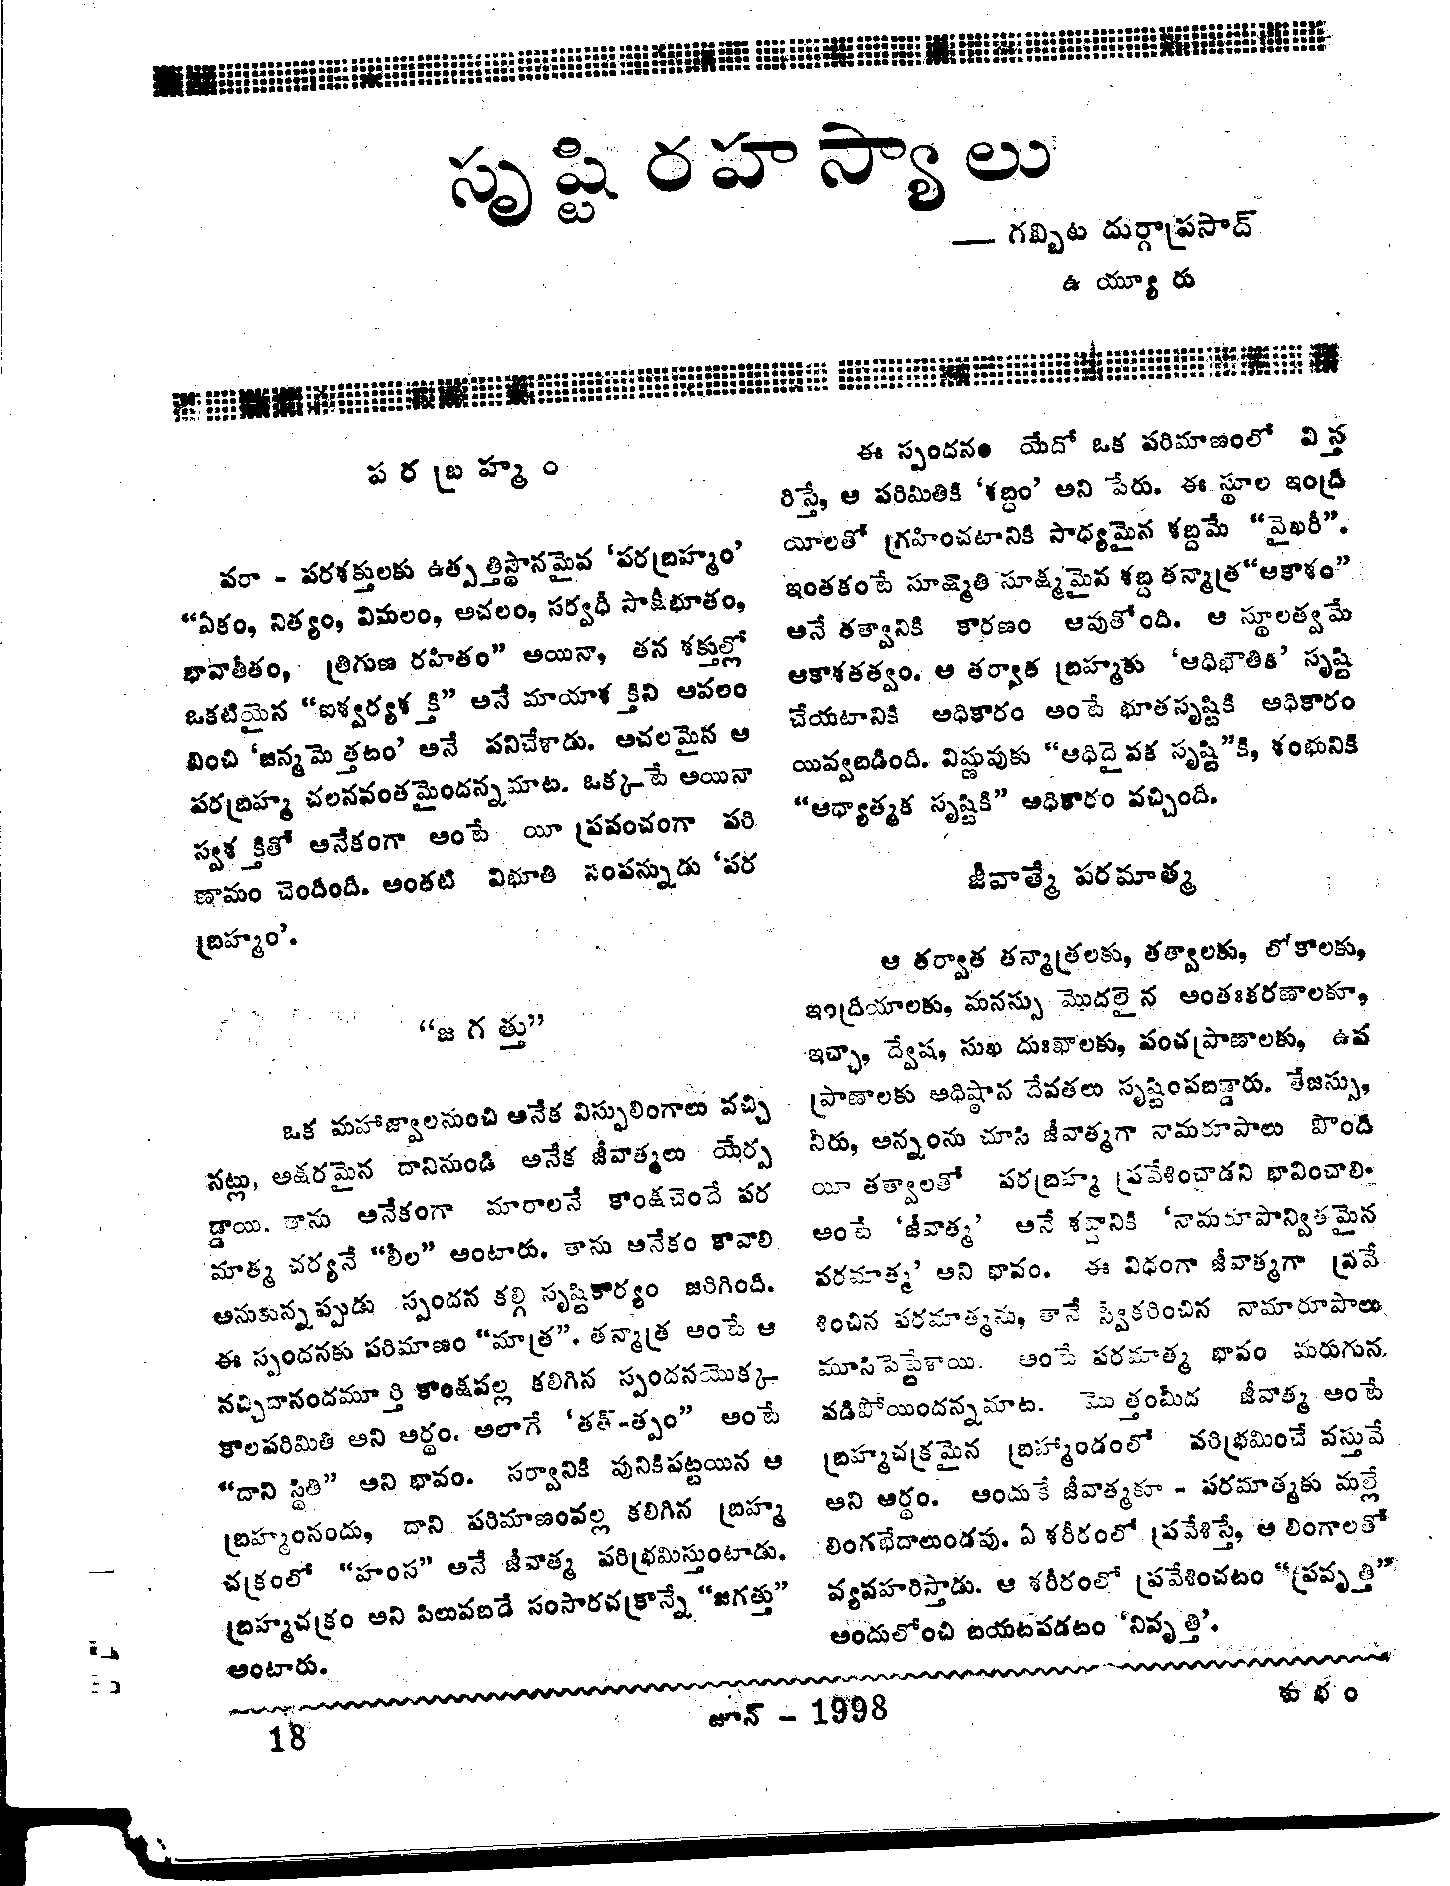 సృష్టి రహస్యాలు
— గబ్బిట దుర్గాప్రసాద్
ఉయ్యూరు
పరబ్రహ్మం
పరా - పరశక్తులకు ఉత్పత్తిస్థానమైవ ‘పరబ్రహ్మం’
“ఏకం, నిత్యం, విమలం, అచలం, సర్వధీ సాక్షీభూతం,
భావాతీతం, త్రిగుణ రహితం” అయినా, తన శక్తుల్లో
ఒకటియైన “ఐశ్వర్యశక్తి” అనే మాయాశక్తిని అవలం
బించి ‘జన్మమెత్తటం’ అనే పనిచేశాడు. అచలమైన ఆ
పరబ్రహ్మ చలనవంతమైందన్నమాట. ఒక్కటే అయినా
స్వశక్తితో అనేకంగా అంటే యీ ప్రపంచంగా పరి
ణామం చెందింది. అంతటి విభూతి సంపన్నుడు ‘పర
బ్రహ్మం’.
“జగత్తు”
ఒక మహాజ్వాలనుంచి అనేక విస్ఫులింగాలు వచ్చి
నట్లు, అక్షరమైన దానినుండి అనేక జీవాత్మలు యేర్ప
డ్డాయి. తాను అనేకంగా మారాలనే కాంక్షచెందే పర
మాత్మ చర్యనే “లీల” అంటారు. తాను అనేకం కావాలి
అనుకున్నప్పుడు స్పందన కల్గి సృష్టికార్యం జరిగింది.
ఈ స్పందనకు పరిమాణం “మాత్ర”. తన్మాత్ర అంటే ఆ
నచ్చిదానందమూర్తి కాంక్షవల్ల కలిగిన స్పందనయొక్క
కాలపరిమితి అని అర్థం. అలాగే ‘తత్-త్వం” అంటే
“దాని స్థితి” అని భావం. సర్వానికి పునికిపట్టయిన ఆ
బ్రహ్మంనందు, దాని పరిమాణంవల్ల కలిగిన బ్రహ్మ
చక్రంలో “హంస” అనే జీవాత్మ పరిభ్రమిస్తుంటాడు.
బ్రహ్మచక్రం అని పిలువబడే సంసారచక్రాన్నే “జగత్తు”
అంటారు.
ఈ స్పందనం యేదో ఒక పరిమాణంలో విస్త
రిస్తే, ఆ పరిమితికి ‘శబ్దం’ అని పేరు. ఈ స్థూల ఇంద్రి
యాలతో గ్రహించటానికి సాధ్యమైన శబ్దమే “వైఖరీ”.
ఇంతకంటే సూక్ష్మాతి సూక్ష్మమైన శబ్ద తన్మాత్ర “ఆకాశం”
అనే తత్వానికి కారణం అవుతోంది. ఆ స్థూలత్వమే
ఆకాశతత్వం. ఆ తర్వాత బ్రహ్మకు ‘ఆధిభౌతిక’ సృష్టి
చేయటానికి అధికారం అంటే భూతసృష్టికి అధికారం
యివ్వబడింది. విష్ణువుకు “ఆధిదైవక సృష్టి”కి, శంభునికి
“ఆధ్యాత్మక సృష్టికి” అధికారం వచ్చింది.
జీవాత్మే పరమాత్మ
ఆ తర్వాత తన్మాత్రలకు, తత్వాలకు, లోకాలకు,
ఇంద్రియాలకు, మనస్సు మొదలైన అంతఃకరణాలకూ,
ఇచ్ఛా, ద్వేష, సుఖ దుఃఖాలకు, పంచప్రాణాలకు, ఉప
ప్రాణాలకు అధిష్ఠాన దేవతలు సృష్టింపబడ్డారు. తేజస్సు,
నీరు, అన్నంను చూసి జీవాత్మగా నామరూపాలు పొంది
యీ తత్వాలతో పరబ్రహ్మ ప్రవేశించాడని భావించాలి.
అంటే ‘జీవాత్మ’ అనే శబ్దానికి ‘నామరూపాన్వితమైన
పరమాత్మ’ అని భావం. ఈ విధంగా జీవాత్మగా ప్రవే
శించిన పరమాత్మను, తానే స్వీకరించిన నామారూపాలు
మూసిపెట్టేశాయి. అంటే పరమాత్మ భావం మరుగున
పడిపోయిందన్నమాట. మొత్తంమీద జీవాత్మ అంటే
బ్రహ్మచక్రమైన బ్రహ్మాండంలో పరిభ్రమించే వస్తువే
అని అర్థం. అందుకే జీవాత్మకూ - పరమాత్మకు మల్లే
లింగభేదాలుండవు. ఏ శరీరంలో ప్రవేశిస్తే, ఆ లింగాలతో
వ్యవహరిస్తాడు. ఆ శరీరంలో ప్రవేశించటం “ప్రవృత్తి”
అందులోంచి బయటపడటం ‘నివృత్తి’.
18
జూన్ - 1998
శుభం